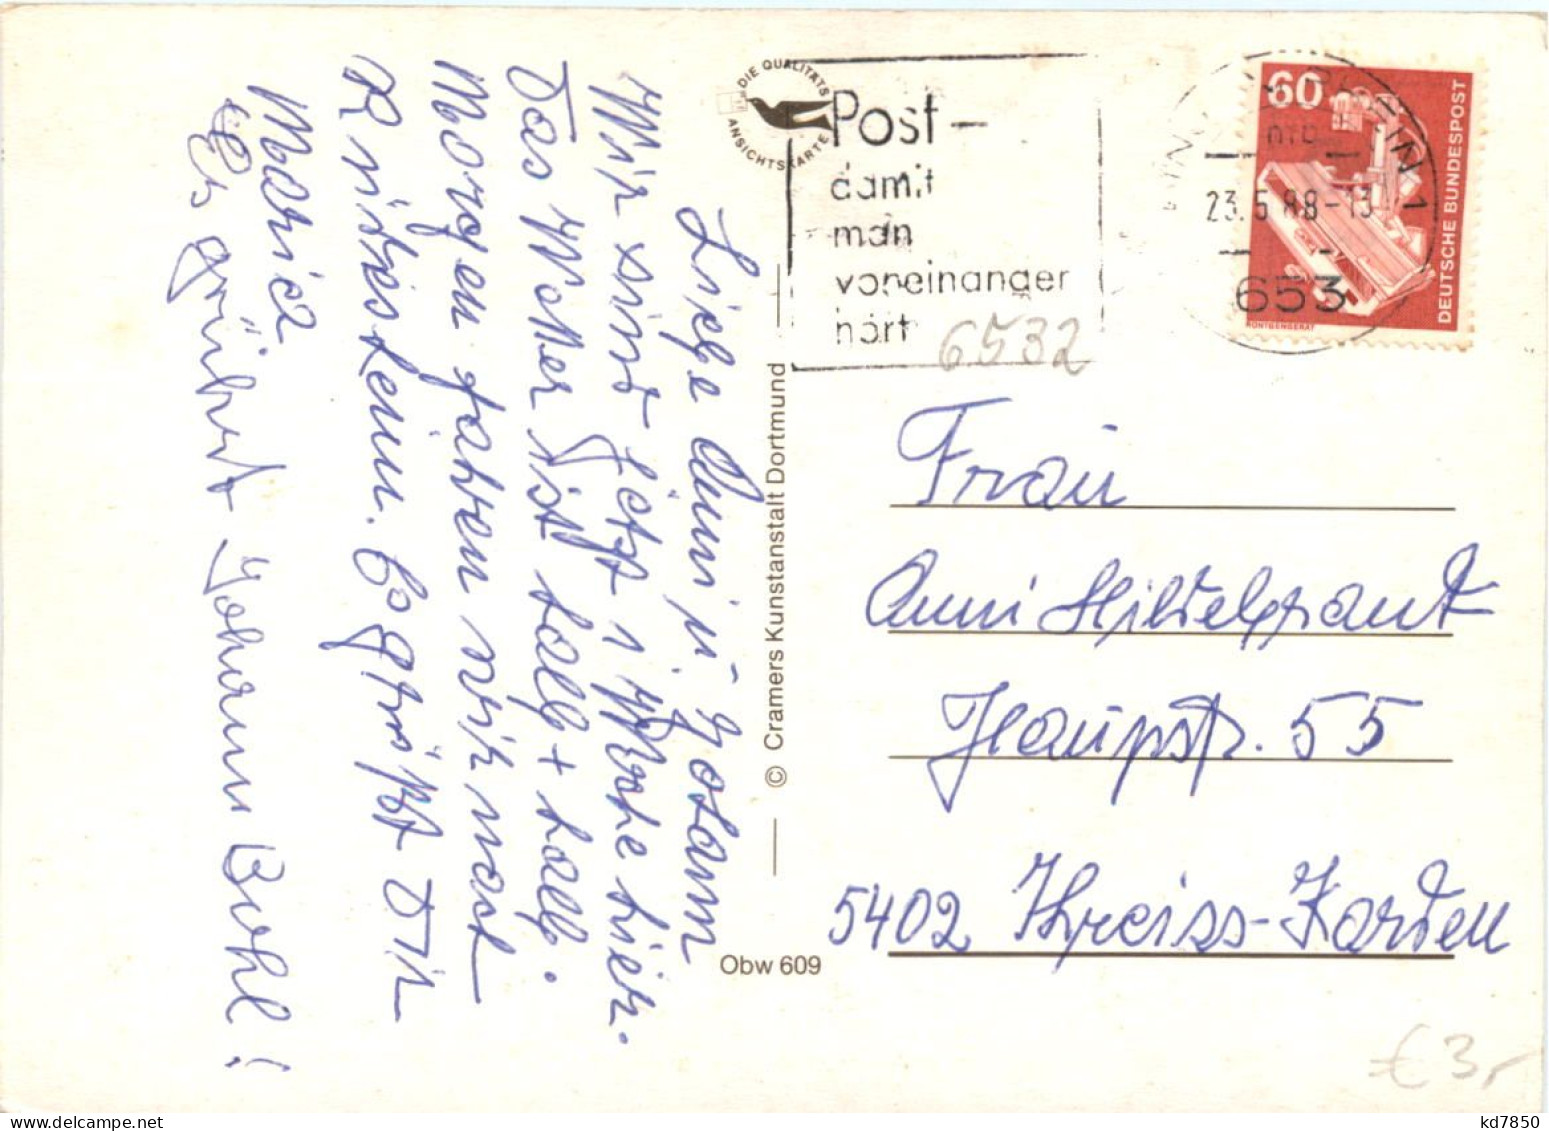 Liebe Anni u. Johann
Wir sind jetzt 1 Woche hier.
Das Wetter ist halb + halb.
Morgen fahren wir nach
Rüdesheim. Es grüßt Dich
Maria
Es grüßt Johann Bohl!
DIE QUALITÄTS
ANSICHTSKARTE
Post –
damit
man
voneinander
hört
6532
60
DEUTSCHE BUNDESPOST
RÖNTGENGERÄT
RHEIN 1
23.5.88-13
653
© Cramers Kunstanstalt Dortmund
Obw 609
Frau
Anni Hildebrandt
Hauptstr. 55
5402 Treiss-Karden
€ 3,-
kd7850